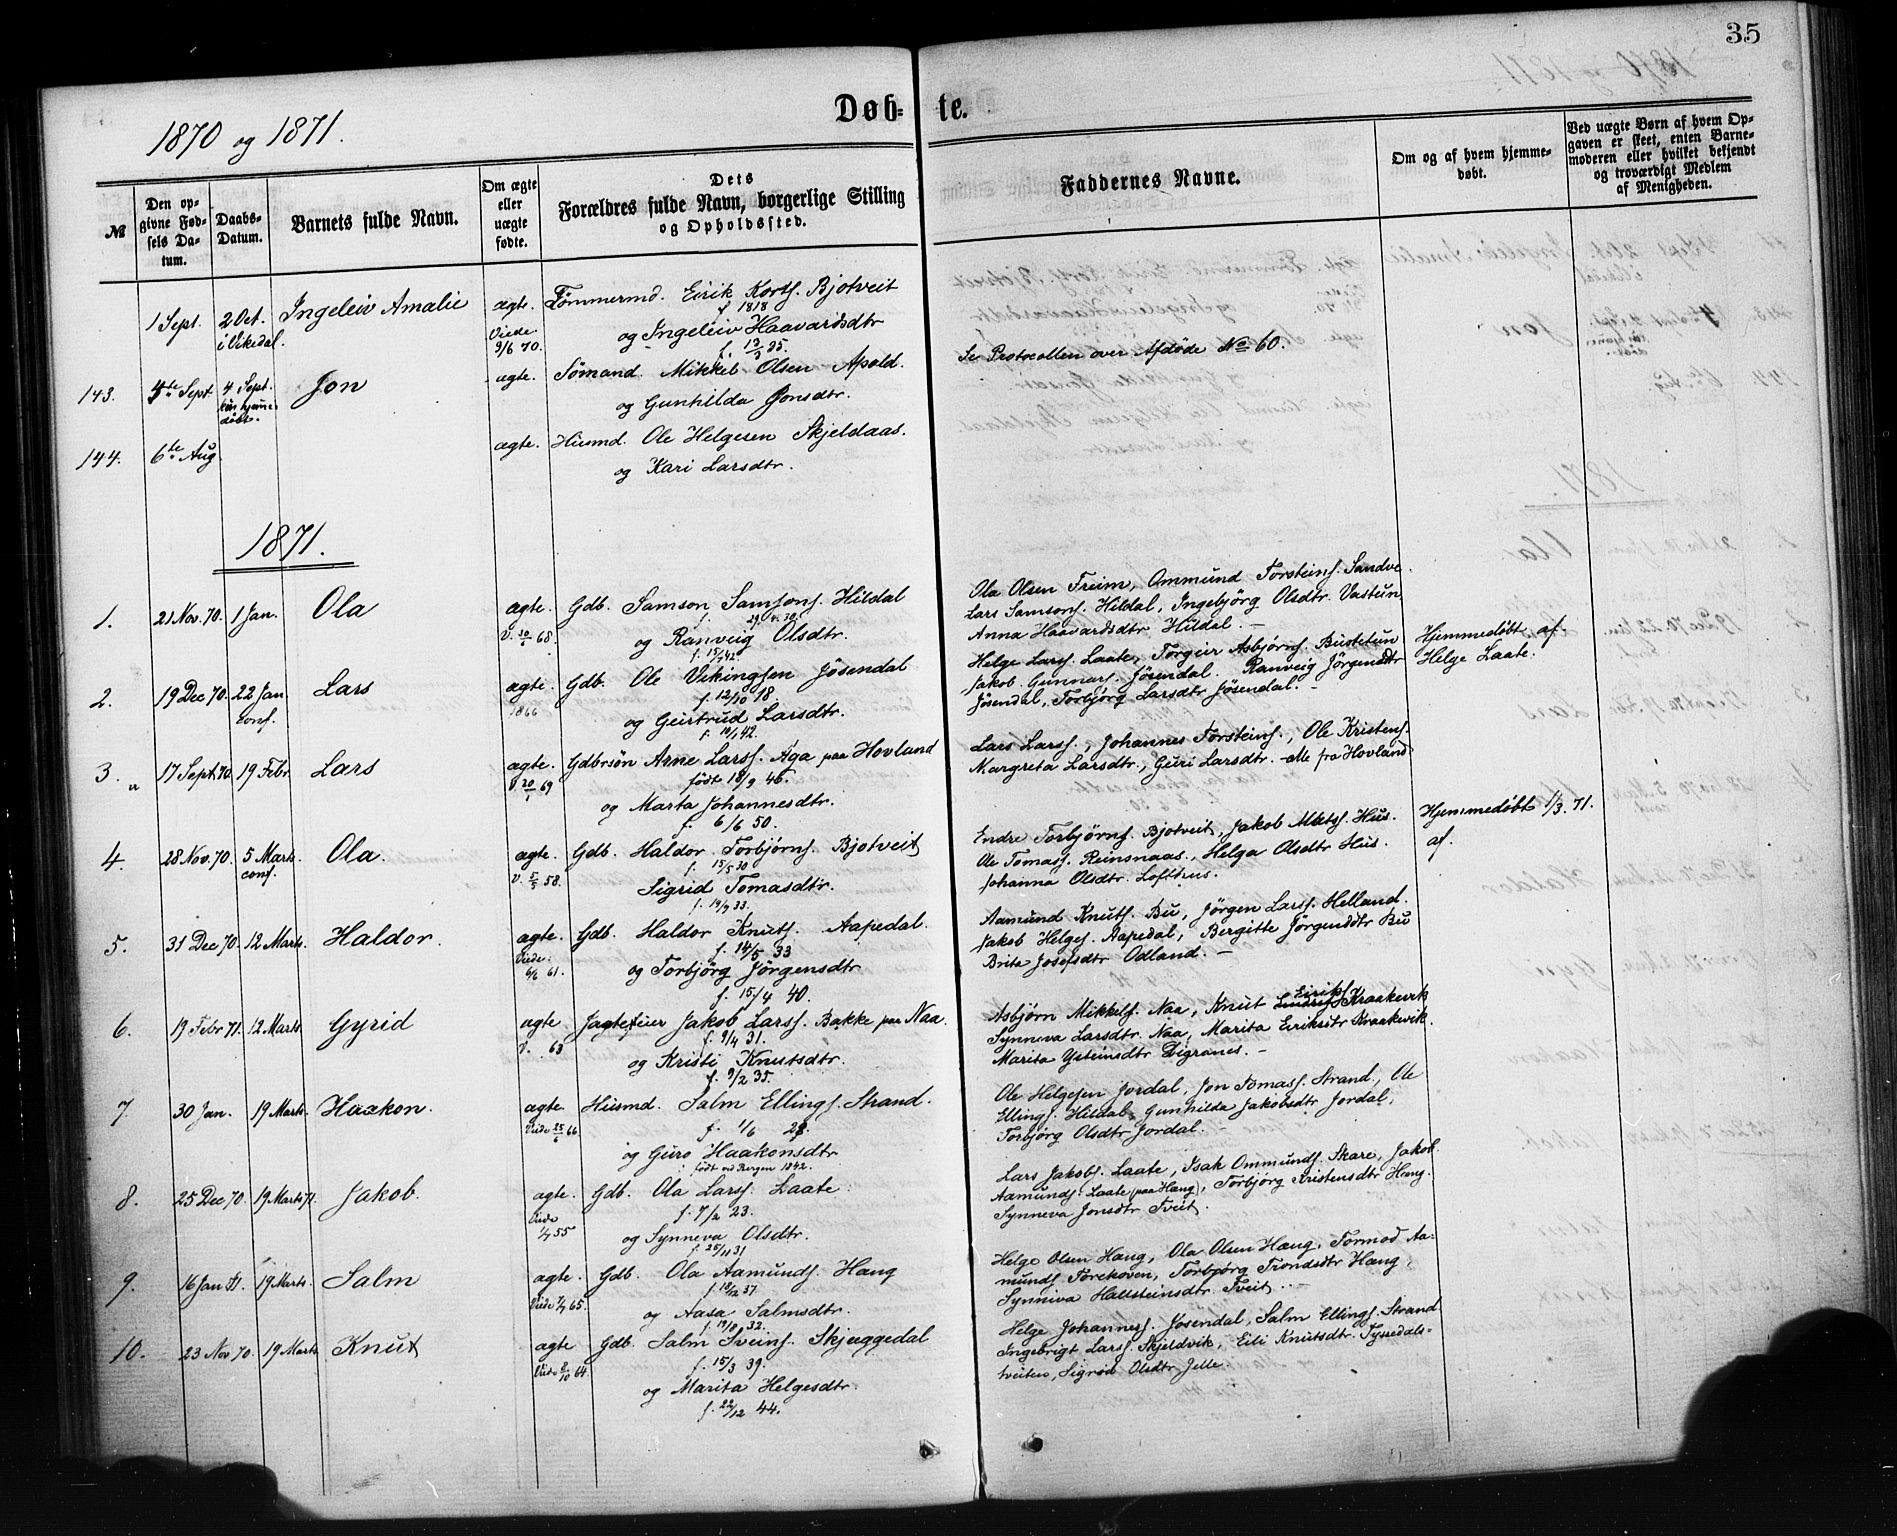 35
Døb-te.
1870 og 1871.
№
Den op-
givne Fød-
sels Da-
tum.
Daabs-
Datum.
Barnets fulde Navn.
Om ægte
eller
uægte
fødte.
Dets
Forældres fulde Navn, borgerlige Stilling
og Opholdssted.
Faddernes Navne.
Om og af hvem hjemme-
døbt.
Ved uægte Børn af hvem Op-
gaven er skeet, enten Barne-
moderen eller hvilket bekjendt
og troværdigt Medlem
af Menigheden.
1 Sept. 2 Oct. Ingeleiv Amalie ægte. Tømmermd. Eirik Korts. Bjotveit
i Vikedal. f 1818
Viede og Ingeleiv Haavardsdtr
9/6 70. f. 35.
143. 4 Sept. Jon ægte. Sømand Mikkel Olsen Apold. Se Protocollen over Afdøde No 60.
hjemme-
døbt.
og Gunhilda Jonsdtr.
144. 6te Aug ægte. Husmd. Ole Helgesen Skjeldaas.
og Kari Larsdtr.
1871.
1. 21 Nov. 70. 1 Jan. Ola ægte. Gdb. Samson Samsons. Hildal
f. 29.4.30.
V. 68. og Ranveig Olsdtr.
f. 15/7 42.
Ola Olsen Freim, Ommund Torsteins. Sandve.
Lars Samsons. Hildal, Ingebjörg Olsdtr. Vastun
Anna Haavardsdtr Hildal. -
2. 19 Dec 70. 22 Jan Lars ægte. Gdb. Ole Vikingsen Jösendal
conf. 1866 f. 12/10 18.
og Geirtrud Larsdtr.
f. 42.
Helge Lars. Laate, Torgeir Asbjørns. Bustetun
Jakob Gunnars. Jösendal. Ranveig Jörgensdtr
Jösendal, Torbjörg Larsdtr Jösendal. -
Hjemmedøbt af
Helge Laate.
3. 17 Sept. 70. 19 Febr. Lars ægte. Gdbrsön Arne Lars. Aga paa Hovland
V. 20/1 69 født 18/9 46.
og Marta Johannesdtr.
f. 6/6 50.
Lars Lars., Johannes Torsteins., Ole Kristens.
Margreta Larsdtr., Guri Larsdtr. - alle fra Hovland
4. 28 Nov. 70. 5 Marts Ola. ægte. Gdb. Haldor Torbjørns. Bjotveit
conf. f. 15/5 30
V. 5/5 58. Sigrid Tomasdtr.
f. 19/9 33.
Endre Torbjørns. Bjotveit, Jakob Mats. Hus.
Ole Tomas. Reinsnaas., Helga Olsdtr Hus.
Johanna Olsdtr. Lofthus.
Hjemmedøbt 1/3. 71.
af.
5. 31 Dec 70. 12 Marts. Haldor. ægte. Gdb. Haldor Knuts. Aapedal.
Viede f. 14/5 33
6/6 61. og Torbjörg Jörgensdtr
f. 15/4 40.
Aamund Knuts. Bu, Jörgen Lars. Helland.
Jakob Helges. Aapedal, Bergitte Jörgensdtr Bu
Brita Josefsdtr Odland. -
6. 19 Febr 71. 12 Marts. Gyrid ægte Jagtefeier Jakob Lars. Bakke paa Naa.
V. 63 f. 9/4 31.
og Kristi Knutsdtr.
f. 9/2 35.
Asbjørn Mikkels. Naa, Knut Eiriks. Kraakevik
Synneva Larsdtr. Naa, Marita Eiriksdtr Kraakevik.
Marita Ysteinsdtr Digranes. -
7 30 Jan. 19 Marts. Haakon. ægte. Husmd. Salm Ellings. Strand.
Viede 66 f. 1/6 28.
og Guro Haakonsdtr
født ved Bergen 1842.
Ole Helgesen Jordal, Jon Tomas. Strand., Ole
Ellings. Hildal, Gunhilda Jakobsdtr Jordal,
Torbjörg Olsdtr Jordal. -
8. 25 Dec 70. 19 Marts 71. Jakob. ægte. Gdb. Ola Lars. Laate.
Viede f. 7/2 23.
55 og Synneva Olsdtr.
f. 25/11 31
Lars Jakobs. Laate, Isak Ommunds. Skare, Jakob
Aamunds. Laate (paa Hæng), Torbjörg Kristensdtr Hæng.
Synneva Jonsdtr Tveit.
9. 16 Jan 71. 19 Marts. Salm ægte. Gdb. Ola Aamunds. Hæng
Viede 65. f. 37.
og Aasa Salmsdtr.
f. 19/8 32.
Helge Olsen Hæng, Ola Olsen Hæng, Tormod Aa-
munds. Torekoven, Torbjørg Trondsdtr Hæng,
Synniva Hallsteinsdtr. Tveit. -
10. 23 Nov 70. 19 Marts. Knut ægte Gdb. Salm Sveins. Skjæggedal
Viede 2/10 64. f. 15/3 39.
og Marita Helgesdtr.
f. 22/12 44.
Helge Johannes. Jösendal, Salm Ellings. Strand
Ingebrigt Lars. Skjeldvik, Eili Knutsdtr. Tyssedals-
tveiten, Sigrid Olsdtr Jelle.